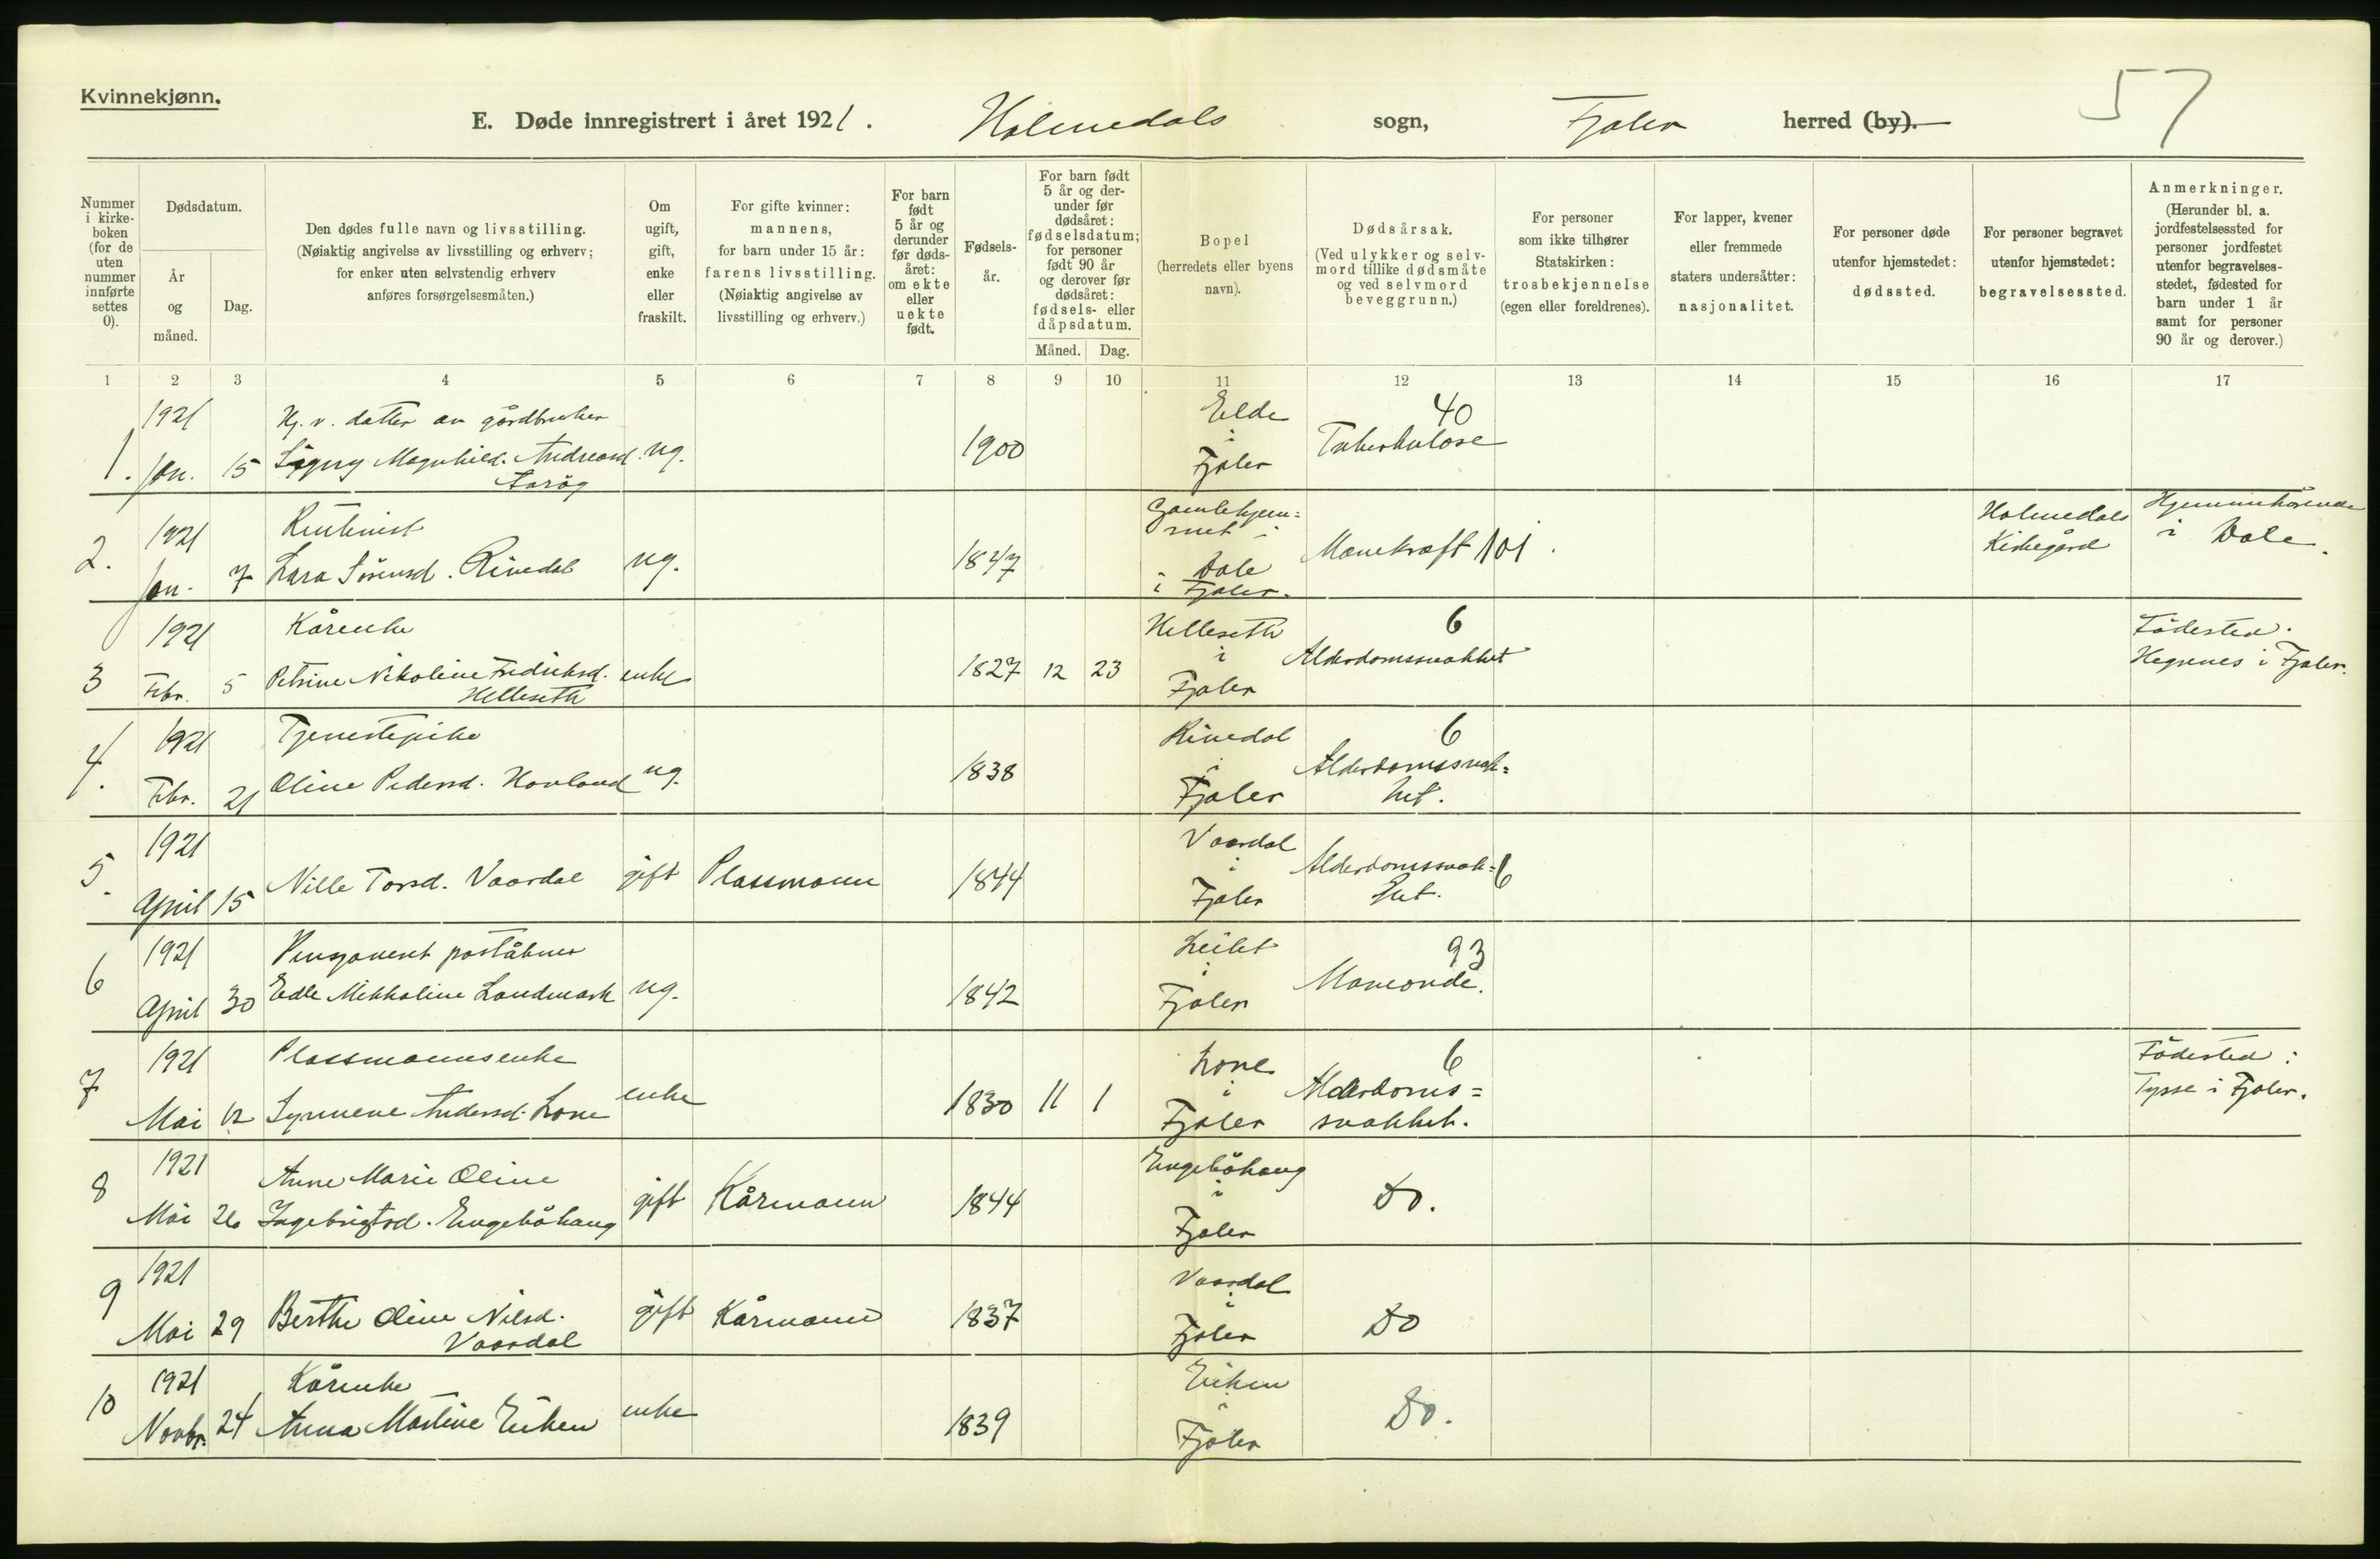 Kvinnekjønn.
57
E. Døde innregistrert i året 1921. Holmedals sogn, Fjaler herred (by).
Nummer i kirkeboken (for de uten nummer innførte settes 0).
Dødsdatum.
År og måned.
Dag.
Den dødes fulle navn og livsstilling. (Nøiaktig angivelse av livsstilling og erhverv; for enker uten selvstendig erhverv anføres forsørgelsesmåten.)
Om ugift, gift, enke eller fraskilt.
For gifte kvinner: mannens, for barn under 15 år: farens livsstilling. (Nøiaktig angivelse av livsstilling og erhverv.)
For barn født 5 år og derunder før dødsåret: om ekte eller uekte født.
Fødselsår.
For barn født 5 år og derunder før dødsåret: fødselsdatum; for personer født 90 år og derover før dødsåret: fødsels- eller dåpsdatum.
Måned. Dag.
Bopel (herredets eller byens navn).
Dødsårsak. (Ved ulykker og selvmord tillike dødsmåte og ved selvmord beveggrunn.)
For personer som ikke tilhører Statskirken: trosbekjennelse (egen eller foreldrenes).
For lapper, kvener eller fremmede staters undersåtter: nasjonalitet.
For personer døde utenfor hjemstedet: dødssted.
For personer begravet utenfor hjemstedet: begravelsessted.
Anmerkninger. (Herunder bl. a. jordfestelsessted for personer jordfestet utenfor begravelsesstedet, fødested for barn under 1 år samt for personer 90 år og derover.)
1 2 3 4 5 6 7 8 9 10 11 12 13 14 15 16 17
1921 Hj. v. datter av gårdbruker Elde 40
1. Jan. 15 Signy Magnhild Andreasd. ug. 1900 i Tuberkulose
Fjaler
1921 Rentenist Gamlehjem=
met i Holmedals Hjemmehörende
2. Jan. 7 Lara Sörensd. Rivedal ug. 1847 Dale 101 Kirkegård i Dale.
i Fjaler.
1921 Kårenke Helleseth 6 Födested:
3 Febr. 5 Petrine Nikoline Fredriksd. enke 1827 12 23 i Alderdomssvakhet Hegrenes i Fjaler.
Helleseth Fjaler
1921 Tjenestepike Rivedal 6
4. Febr. 21 Oline Pedersd. Hovland ug. 1838 i Alderdomssvak=
Fjaler het.
1921 Vaardal
5. April 15 Nille Torsd. Vaardal gift Plassmann 1844 i Alderdomssvak= 6
Fjaler het.
1921 Pensjonert poståbner Leilet 93
6 April 30 Edle Mikkaline Landmark ug. 1842 i
Fjaler
1921 Plassmannsenke Lone 6 Födested:
7 Mai 12 Synneve Andersd. Lone enke 1830 11 1 i Alderdoms= Tysse i Fjaler.
Fjaler svakhet.
1921 Anne Marie Oline Engeböhaug
8 Mai 26 Ingebrigtsd. Engeböhaug gift Kårmann 1844 i Do.
Fjaler
1921 Vaardal
9 Mai 29 Berthe Oline Nilsd. gift Kårmann 1837 i Do
Vaardal Fjaler
1921 Kårenke Eiken
10 Novbr. 24 Anna Martine Eiken enke 1839 i Do.
Fjaler